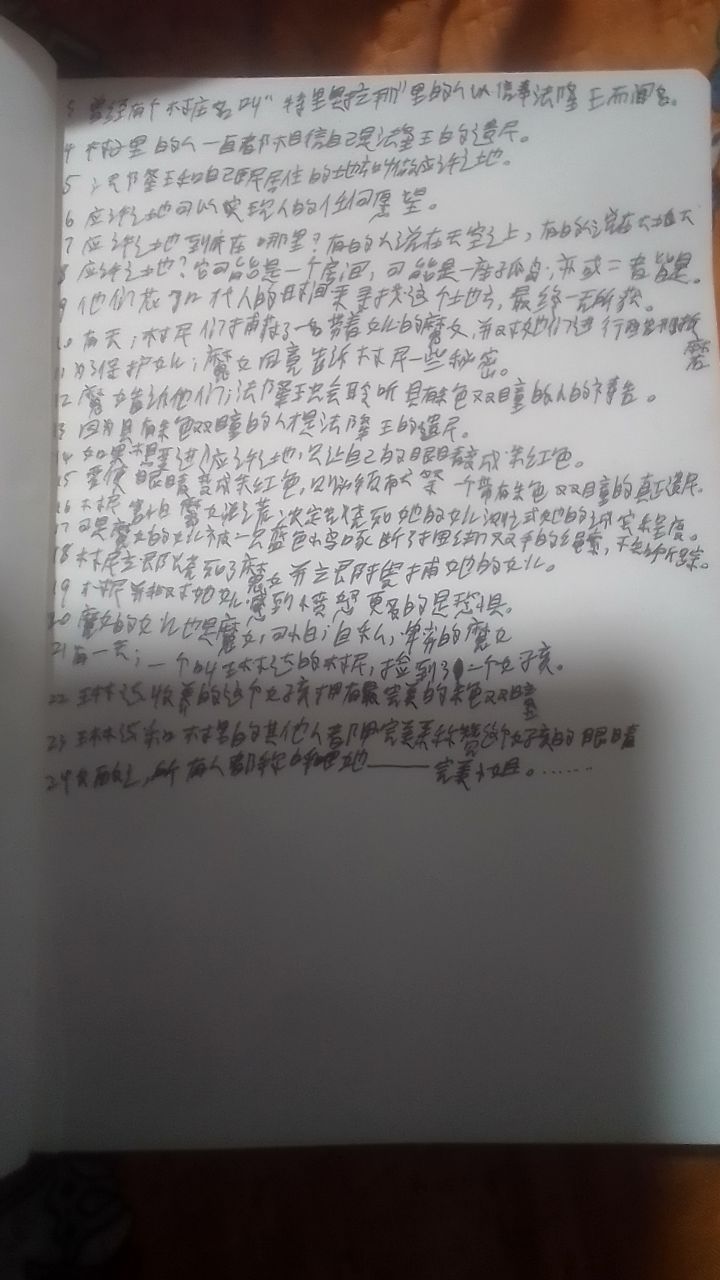 3 曾经有个村庄名叫"特里奥拉那"里的人以信奉法隆王而闻名。
4 村子里的人一直都相信自己是法隆王的遗民。
5 法隆王和自己臣民居住的地方叫做应许之地。
6 应许之地可以实现人的任何愿望。
7 应许之地到底在哪里?有的人说在天空之上,有的人说在大地
8 应许之地?它可能是一个房间,可能是一座孤岛,亦或二者皆是。
9 他们花了几代人的时间来寻找这个土地方,最终一无所获。
10 有天;村民们捕获了一名带着女儿的魔女,并对她们进行
11 为了保护女儿;魔女同意告诉村民一些秘密。
12 魔女告诉他们;法隆王只会聆听具有朱色双目童的人的祷告。
13 因为具有朱色双目童的人才是法隆王的遗民。
14 如果想要进入应许之地,只让自己的眼目睛变成朱红色。
15 要使眼睛变成朱红色,必须献祭一个带有朱色双目童的真正遗民。
16 村民害怕魔女说谎,决定先烧死她的女儿测试她的诚实程度。
17 可是魔女的女儿被一只蓝色小鸟啄断了捆绑双手的绳索,不知所踪。
18 村民立即烧死了魔女并立即搜捕她的女儿。
19 村民并对她女儿感到愤怒更多的是恐惧。
20 魔女的女儿也是魔女,可怕;自私,卑劣的魔女
21 有一天;一个叫王林达的村民,捡到了一个女孩。
22 王林达收养的这个女孩拥有最完美的朱色双目童
23 王林达和村里的其他人都用完美来称赞这个女孩的眼睛
24 所有人都称呼她——完美小姐。……